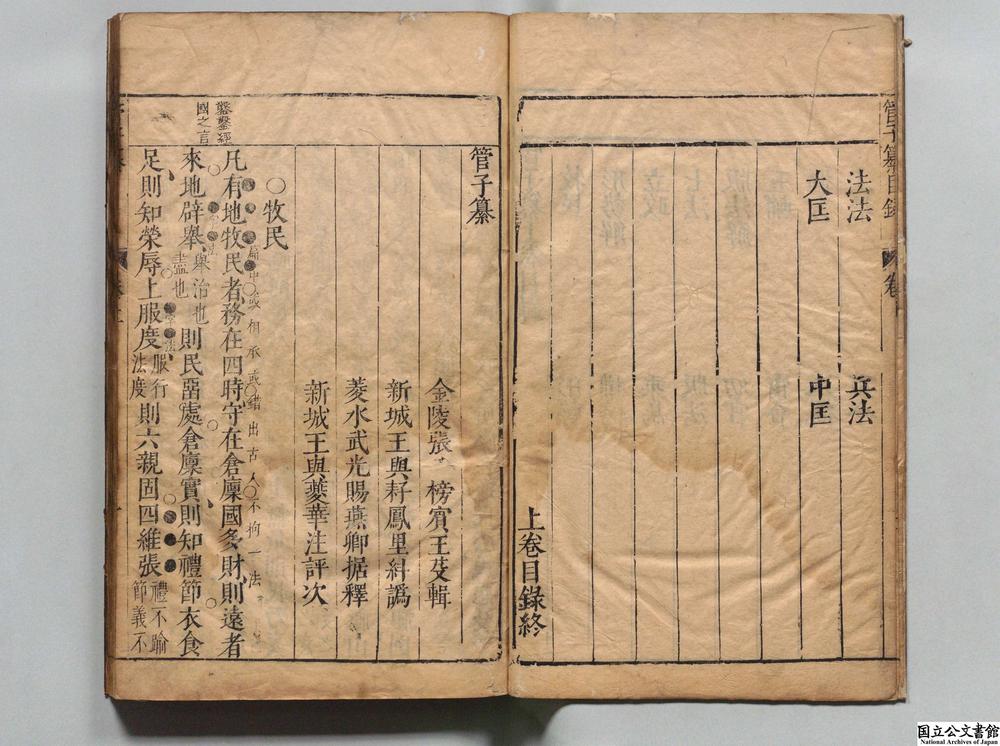 管子纂目錄
卷
法法
兵法
大匡
中匡
上卷目錄終
管子纂
金陵張榜賓王父輯
新城王與籽鳳里糾譌
菱水武光賜燕卿据釋
新城王與夔華注評次
○牧民
凡有地牧民者務在四時守在倉廩國多財則遠者
來地辟舉舉治也盡也則民留處倉廩實則知禮節衣食
足則知榮辱上服度服行法度則六親固四維張禮不踰節義不
鑿鑿經國之言
或相承或錯出古人不拘一法
国立公文書館
National Archives of Japan